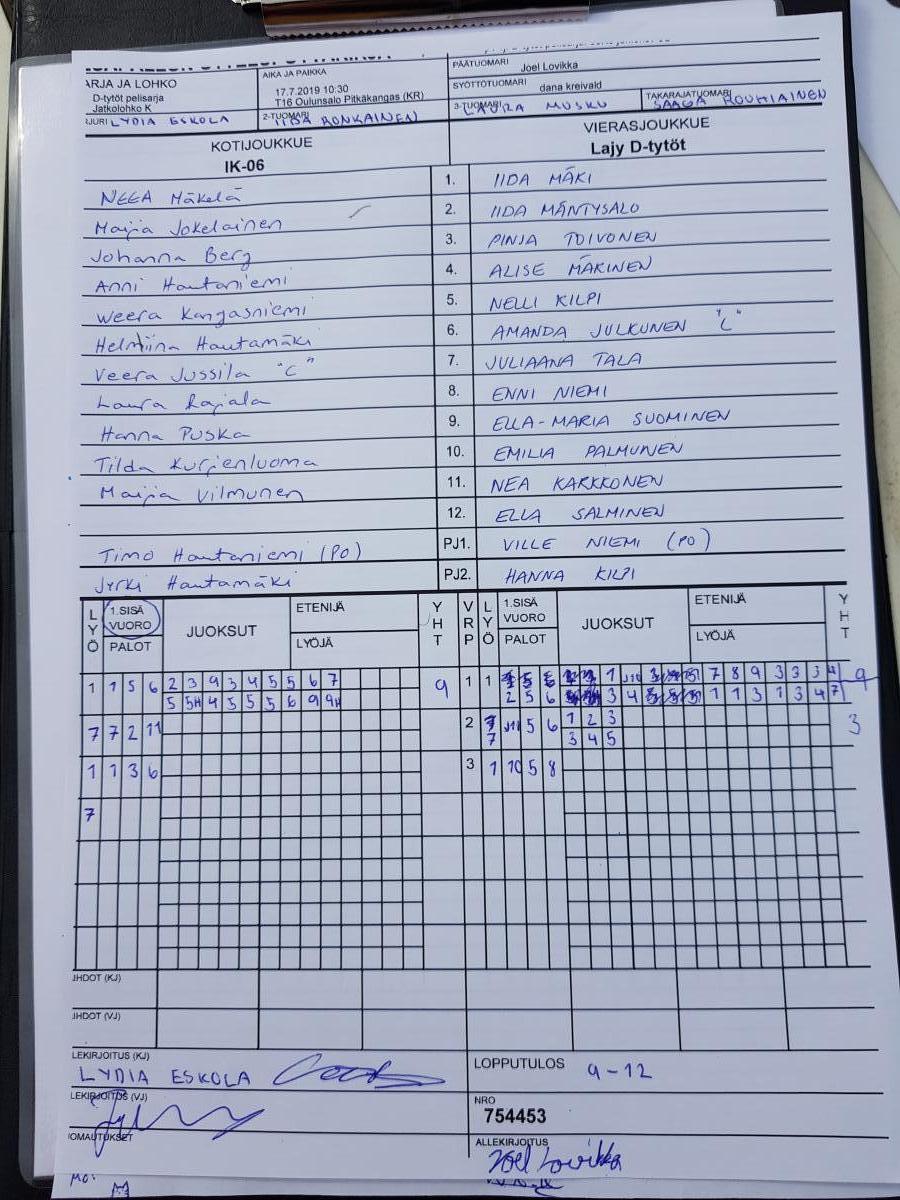 ARJA JA LOHKO
D-tytöt pelisarja
Jatkolohko K
JURI LYDIA ESKOLA
AIKA JA PAIKKA
17.7.2019 10:30
T16 Oulunsalo Pitkäkangas (KR)
2-TUOMARI IIDA RONKAINEN
PÄÄTUOMARI Joel Lovikka
SYÖTTÖTUOMARI dana kreivald
3-TUOMARI LAURA MUSKU
TAKARAJATUOMARI SAAGA ROUHIAINEN
KOTIJOUKKUE
IK-06
VIERASJOUKKUE
Lajy D-tytöt
NEEA Mäkelä 1. IIDA MÄKI
Maija Jokelainen 2. IIDA MÄNTYSALO
Johanna Berg 3. PINJA TOIVONEN
Anni Hautaniemi 4. ALISE MÄKINEN
Weera Kangasniemi 5. NELLI KILPI
Helmiina Hautamäki 6. AMANDA JULKUNEN "C"
Veera Jussila "C" 7. JULIAANA TALA
Laura Rajala 8. ENNI NIEMI
Hanna Puska 9. ELLA-MARIA SUOMINEN
Tilda Kurjenluoma 10. EMILIA PALMUNEN
Maija Vilmunen 11. NEA KARKKONEN
12. ELLA SALMINEN
Timo Hautaniemi (PO) PJ1. VILLE NIEMI (PO)
Jyrki Hautamäki PJ2. HANNA KILPI
LYÖ 1.SISÄ VUORO PALOT JUOKSUT ETENIJÄ LYÖJÄ YHT VRP LYÖ 1.SISÄ VUORO PALOT JUOKSUT ETENIJÄ LYÖJÄ YHT
1 1 5 6 2 3 9 3 4 5 5 6 7 9 1 1 1 7 8 9 3 3 3 4 9
5 5H 4 5 5 5 6 9 9H 2 5 6 3 4 1 1 3 1 3 4 7
7 7 2 11 2 7 5 6 1 2 3 3
3 4 5
1 1 3 6 3 1 10 5 8
7
JHDOT (KJ)
JHDOT (VJ)
LEKIRJOITUS (KJ)
LYDIA ESKOLA
LEKIRJOITUS (VJ)
OMAUTUKSET
LOPPUTULOS 9-12
NRO
754453
ALLEKIRJOITUS
Joel Lovikka